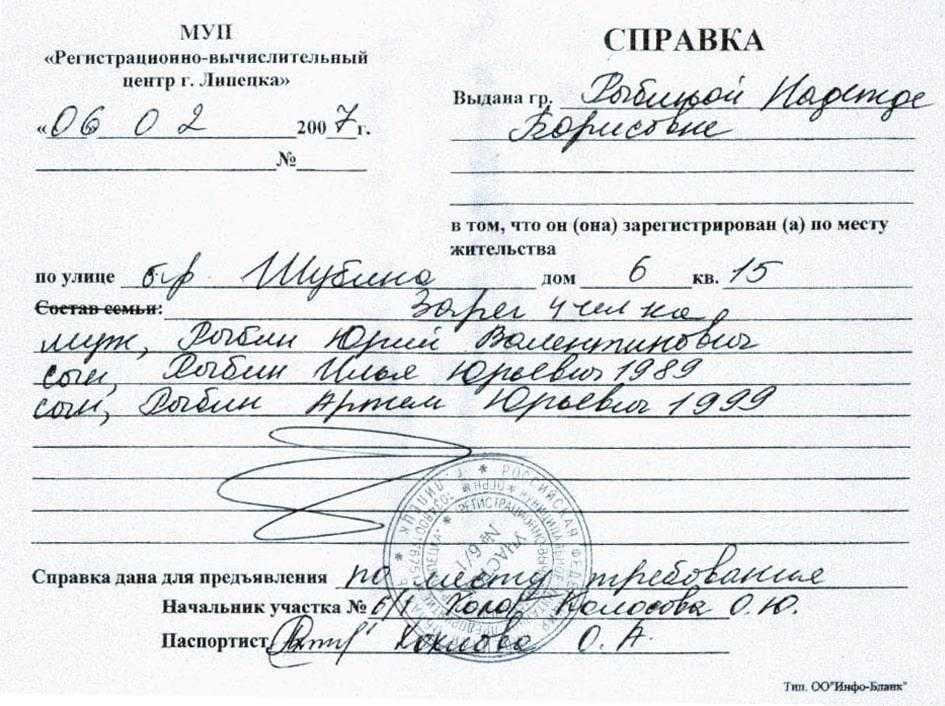 МУП
«Регистрационно-вычислительный
центр г. Липецка»
«06 02 2007 г.
№
СПРАВКА
Выдана гр. Рыбиной Надежде
Борисовне
в том, что он (она) зарегистрирован (а) по месту
жительства
по улице б-р Шубина дом 6 кв. 15
Состав семьи: Зарег 4 чел ка
муж, Рыбин Юрий Валентинович
сын, Рыбин Илья Юрьевич 1989
сын, Рыбин Артем Юрьевич 1999
Справка дана для предъявления по месту требования
Начальник участка № 6/1 Колосова О.Ю.
Паспортист Хохлова О. А.
РОССИЙСКАЯ ФЕДЕРАЦИЯ
Г. ЛИПЕЦК
УЧАСТОК № 6/1
Тип. ОО"Инфо-Бланк"